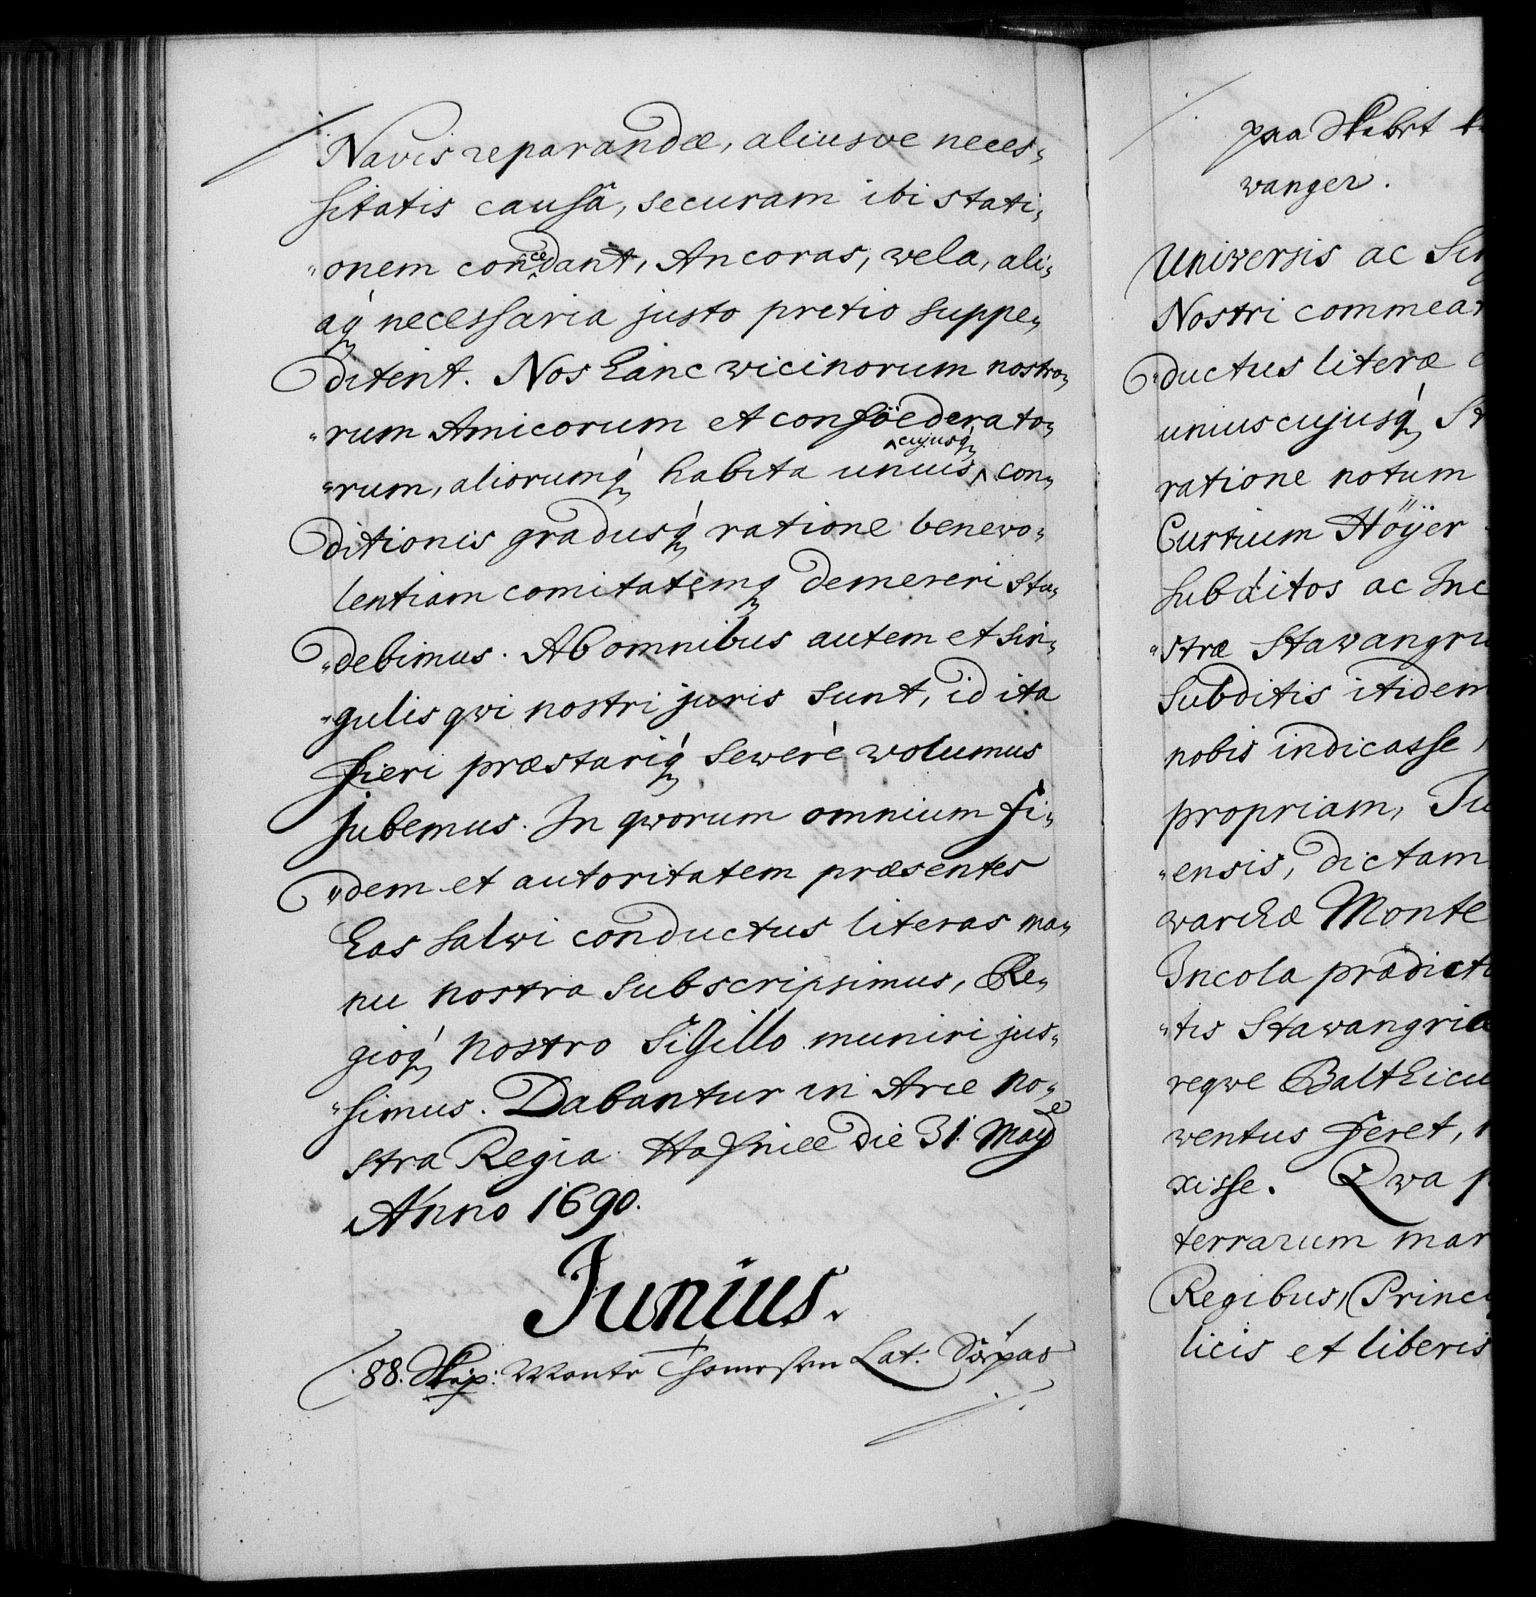 Navis reparandæ, aliusve neces„
sitatis causâ, securam ibi stati„
„onem concedant, Ancoras, vela, ali„
aq́ necessaria justo pretio suppe„
ditent. Nos hanc vicinorum nostro„
„rum Amicorum et confœderato„
„rum, aliorumq́ habita uniuscujusq́ con„
ditionis gradusq́ ratione benevo„
lentiam comitatemq demereri stu„
„debimus. Ab omnibus autem et sin„
„gulis qvi nostri juris sunt, id ita
fieri præstariq́ severè volumus
jubemus. In qvorum omnium fi„
„dem et autoritatem præsentes
has salvi conductus literas ma„
nu nostra subscripsimus, Re„
gioq́ nostro Sigillo muniri jus„
„simus. Dabantur in Arce no„
stra Regia Hafniæ die 31. Maÿ
Anno 1690.
Junius.
88. Skip: Monte Thomesen Lat. Söepas
paa Skibet
vanger.
Universis ac Sin
Nostri commeat
„ductus literæ
uniuscujusq́ St
ratione notum
Curtium Höÿer
Subditos ac Inc
„stræ Stavangri
Subditis itidem
nobis indicasse
propriam,
„ensis, dictam
varchæ Monte
Incola prædict
„tis Stavangria
reqve Balthicu
ventus feret,
xisse. Qva p
terrarum mar
Regibus, Princi
licis et liberis